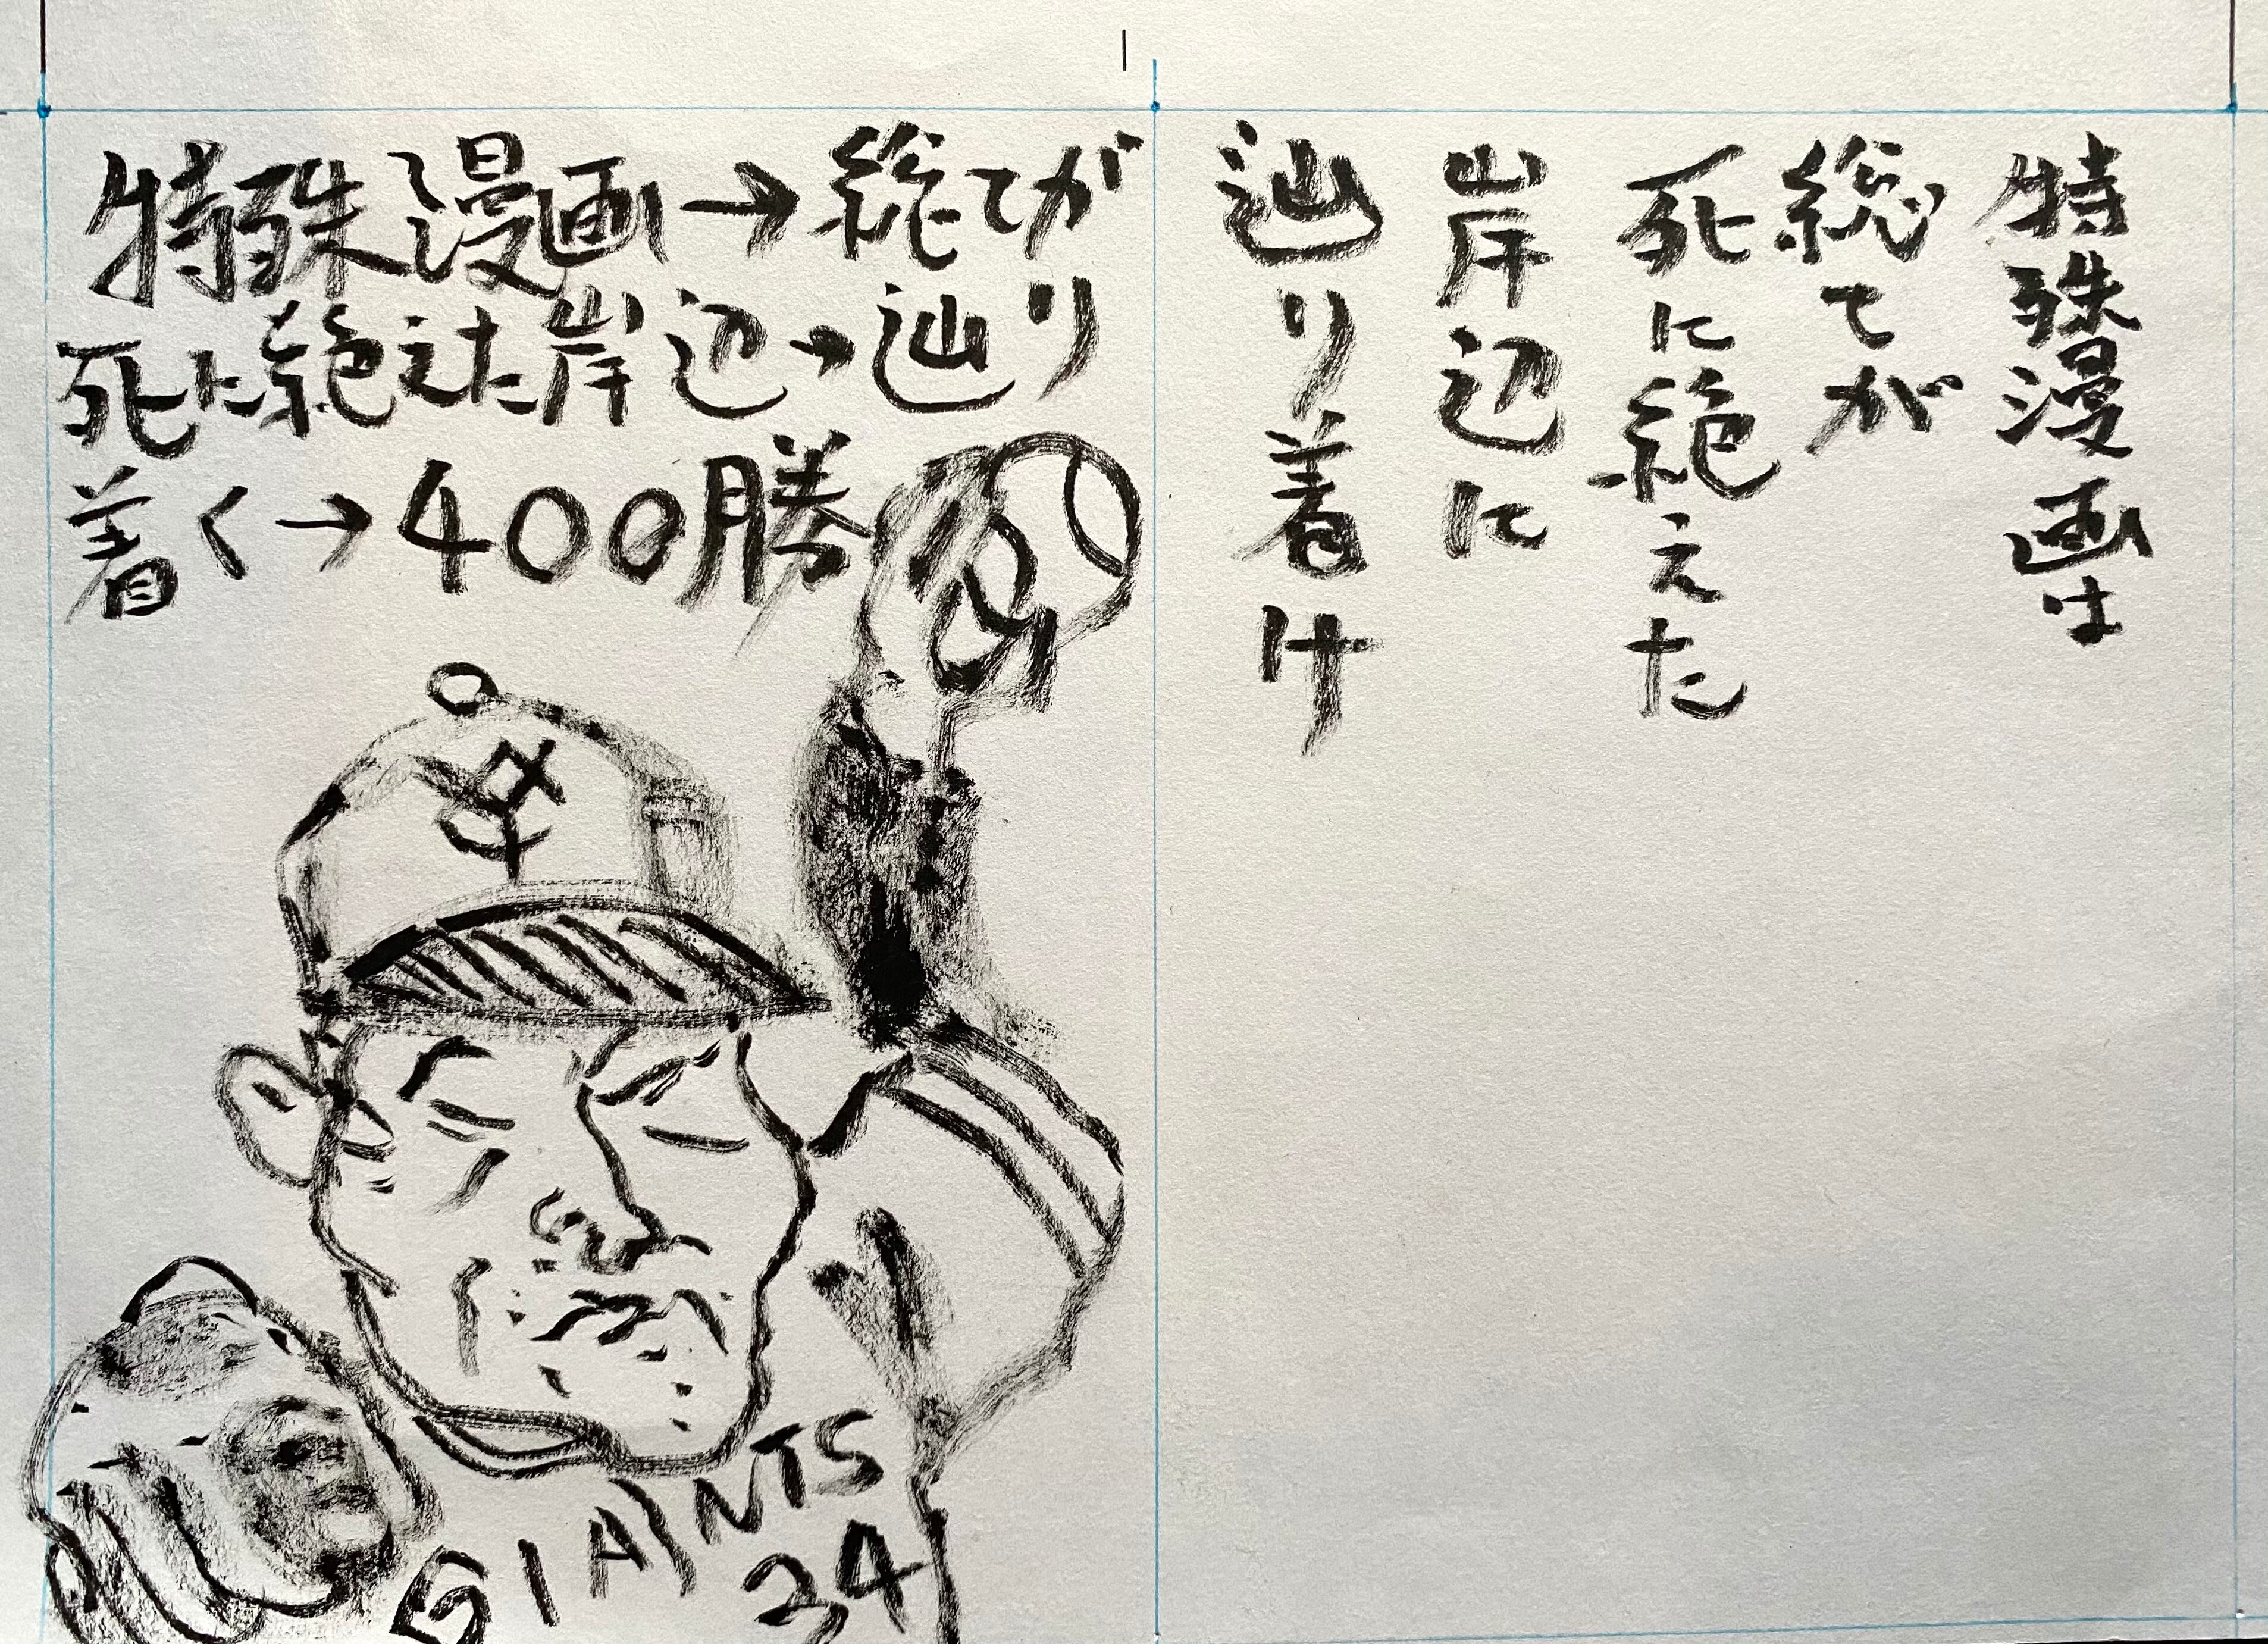 特殊漫画は
総てが
死に絶えた
岸辺に
辿り着け
特殊漫画→総てが
死に絶えた岸辺→辿り
着く→400勝
GIANTS
34